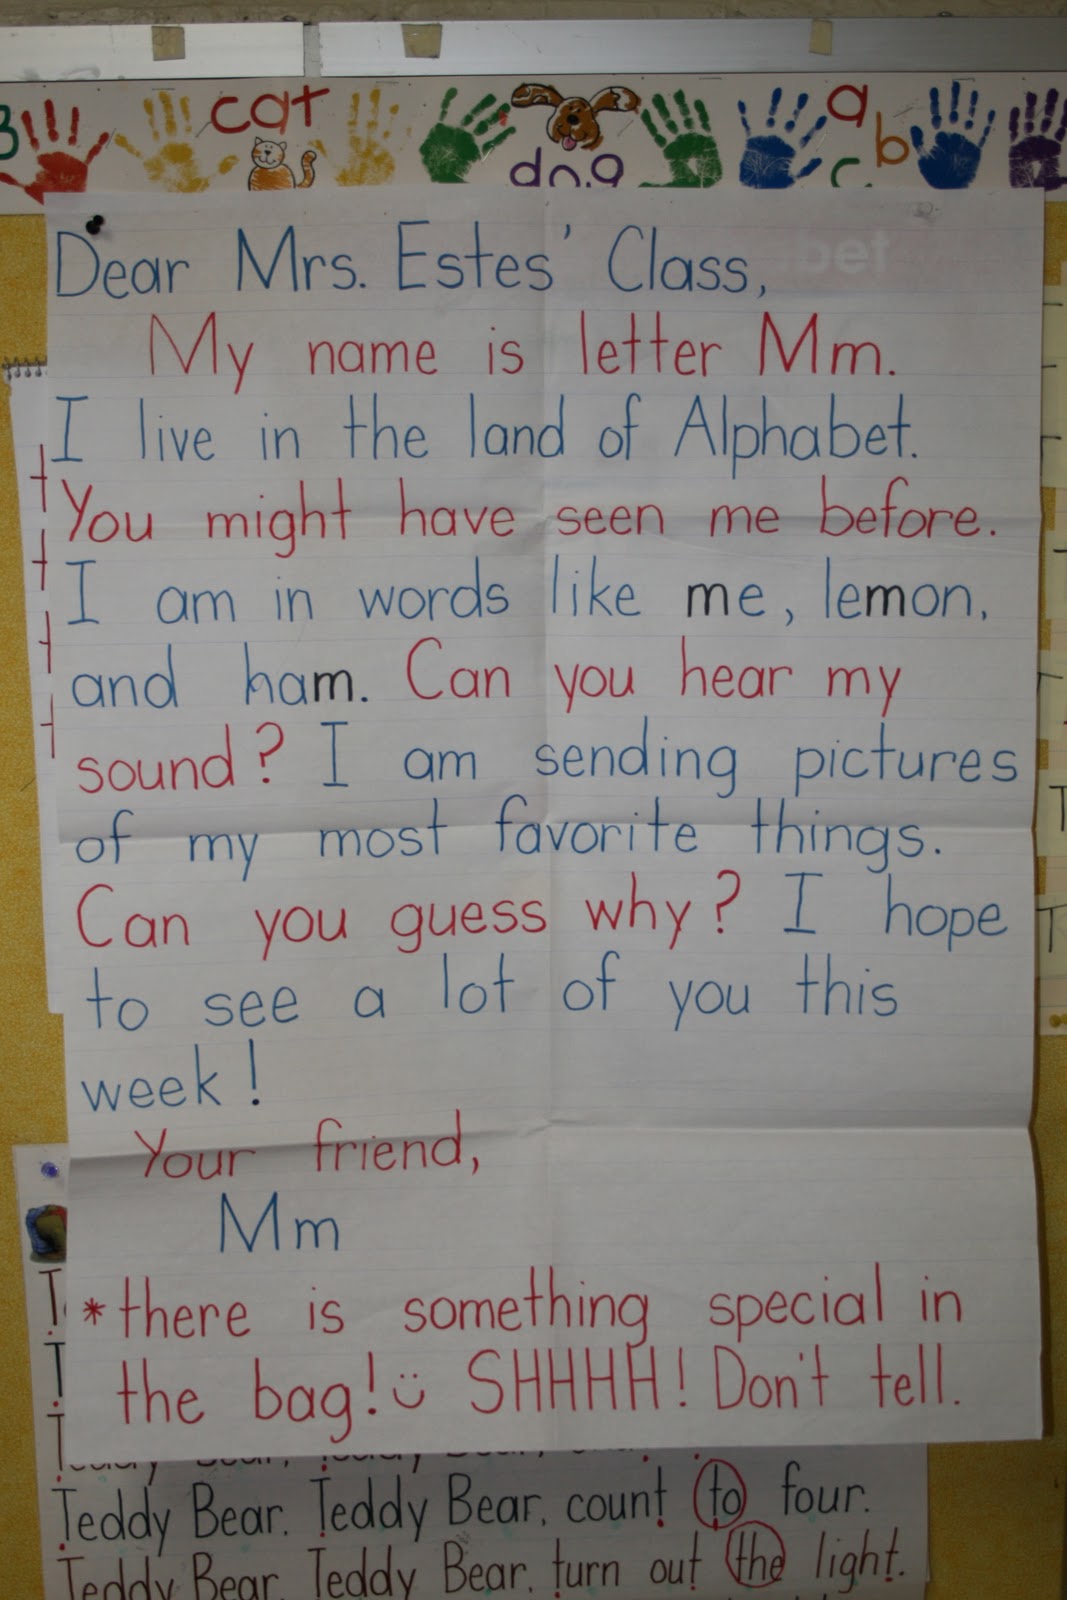 cat
dog
a
b
c
Dear Mrs. Estes' Class,
My name is letter Mm.
I live in the land of Alphabet.
You might have seen me before.
I am in words like me, lemon,
and ham. Can you hear my
sound? I am sending pictures
of my most favorite things.
Can you guess why? I hope
to see a lot of you this
week!
Your friend,
Mm
*there is something special in
the bag! SHHHH! Don't tell.
Teddy Bear, Teddy Bear, count to four.
Teddy Bear, Teddy Bear, turn out the light.